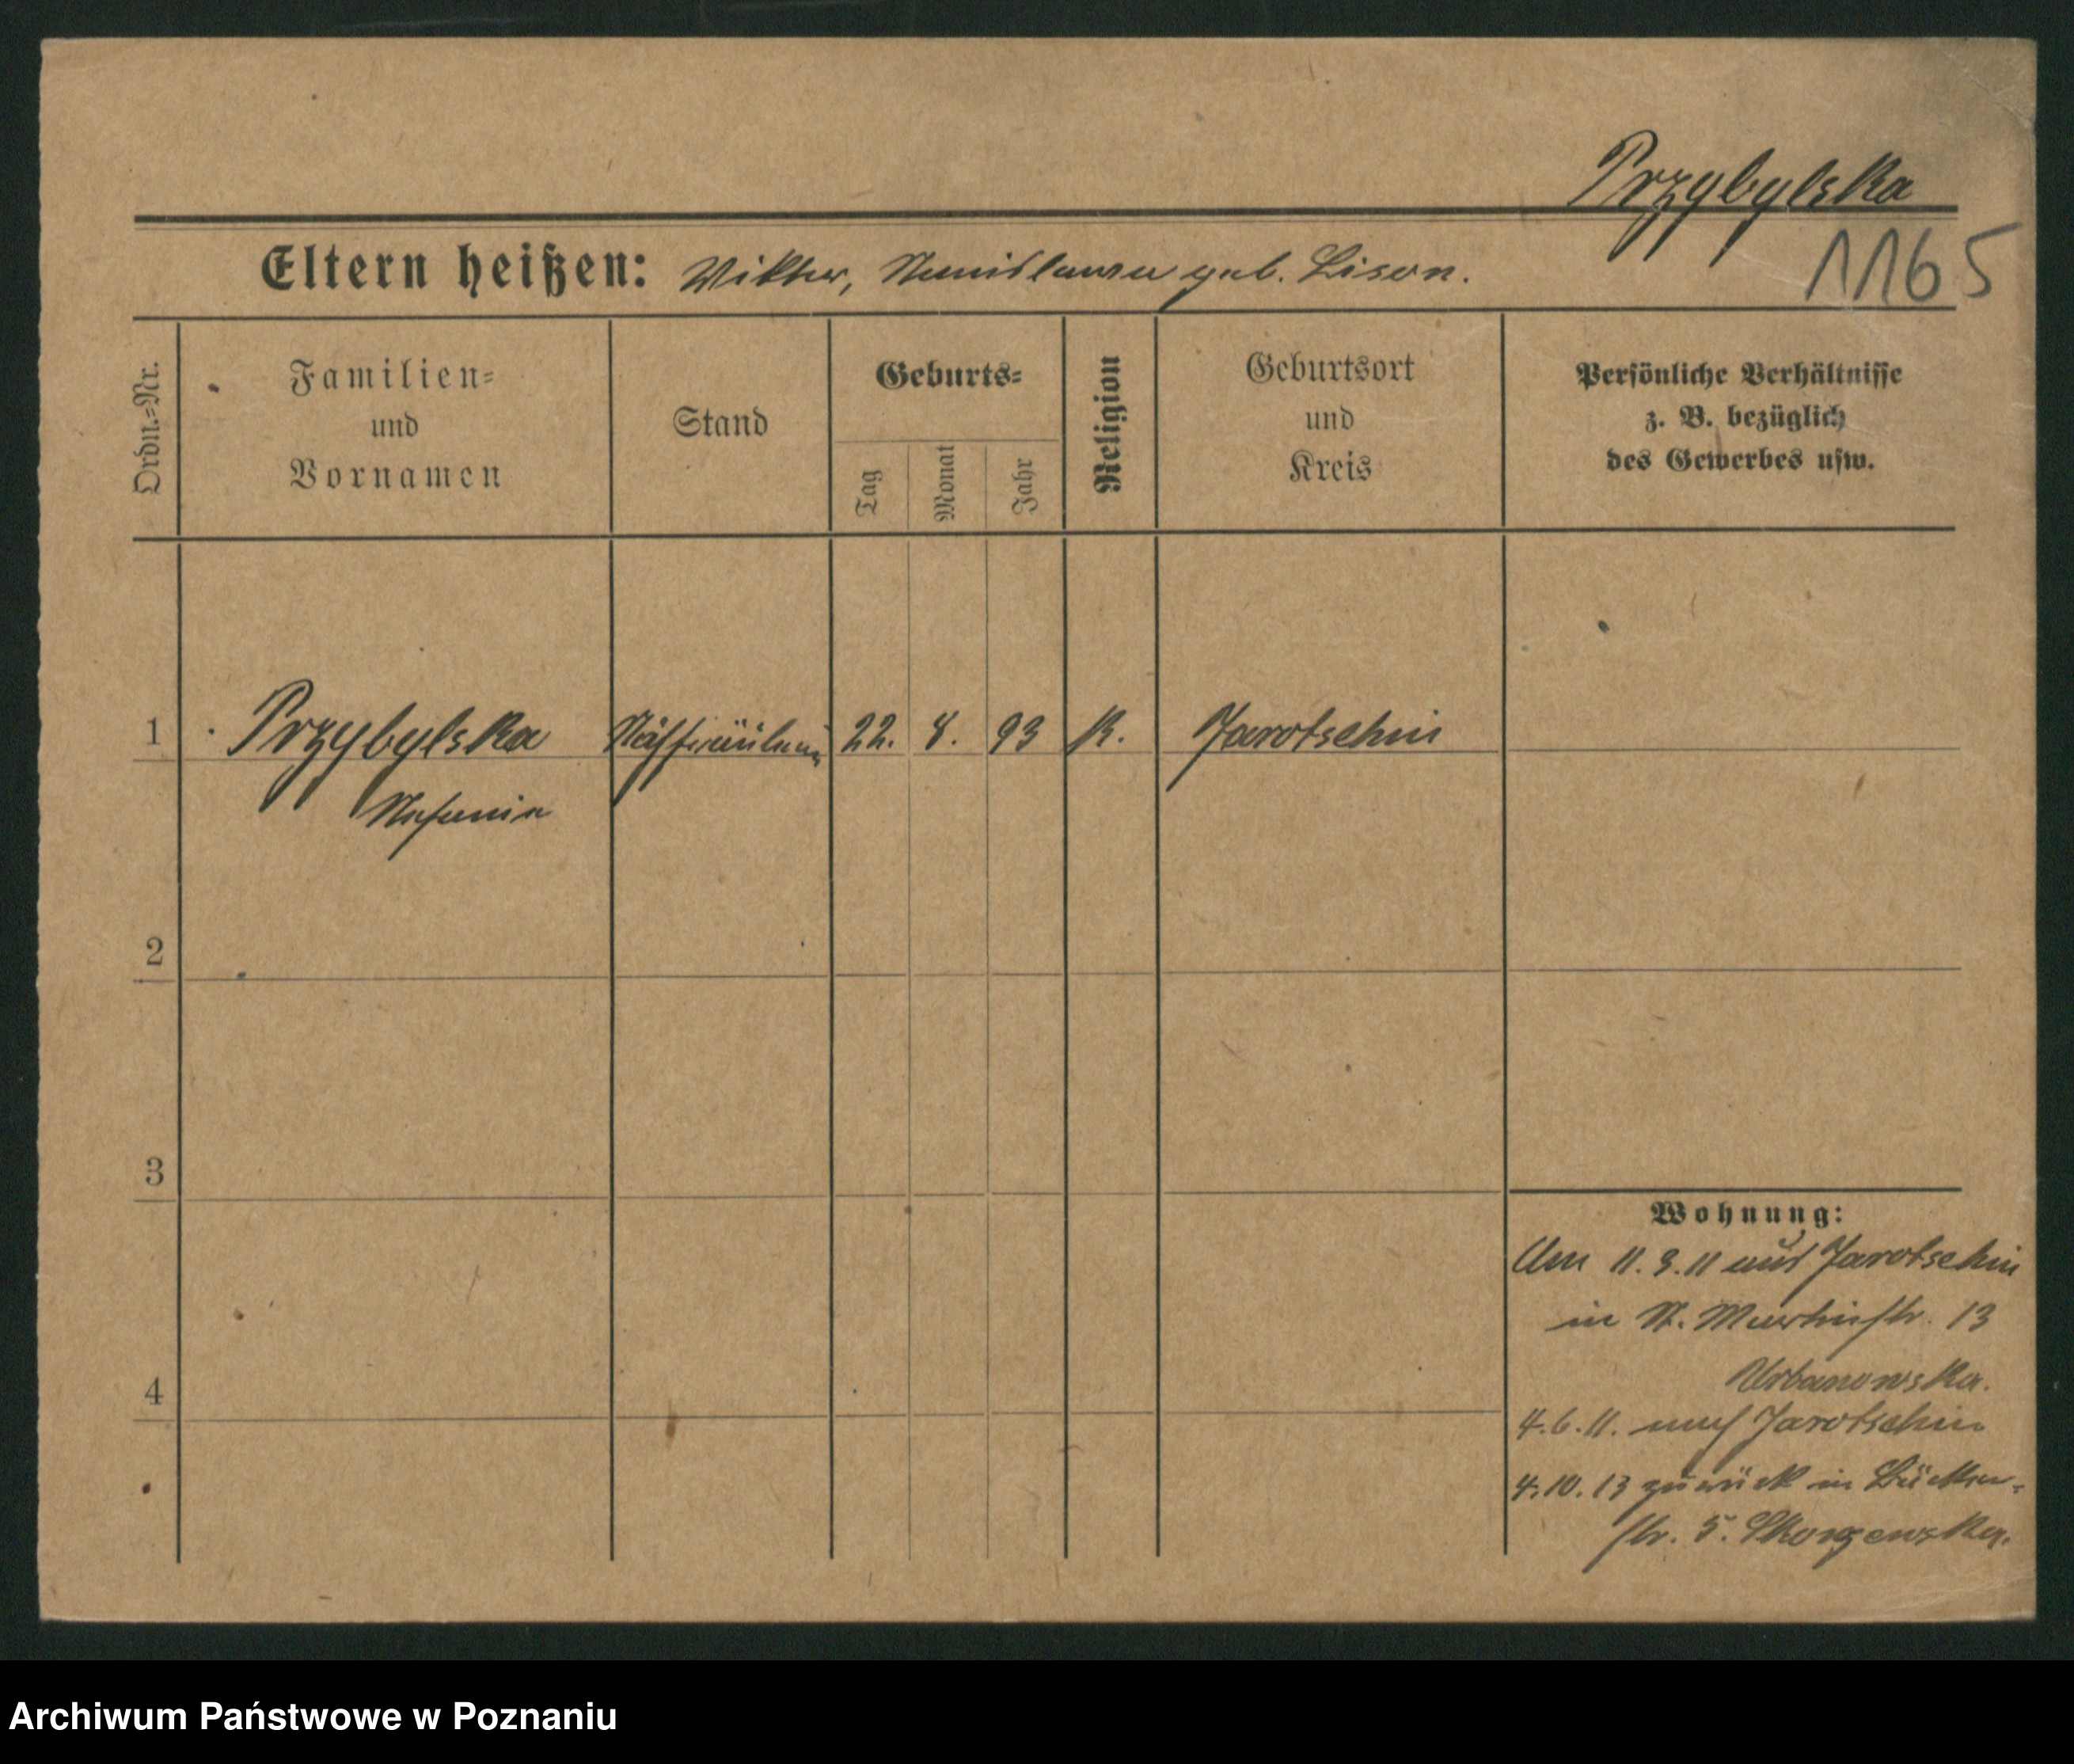 Przybylska
1165
Eltern heißen: Wiktor, Stanislawa geb. Lison.
Ordn.=Nr.
Familien=
und
Vornamen
Stand
Geburts=
Tag
Monat
Jahr
Religion
Geburtsort
und
Kreis
Persönliche Verhältnisse
z. B. bezüglich
des Gewerbes usw.
1 Przybylska 22. 8. 93 K. Jarotschin
Stefania
2
3
4
Wohnung:
Am 11.3.11 aus Jarotschin
in St. Martinstr. 13
Urbanowska.
4.6.11. nach Jarotschin
4.10.13 zurück in
str. 5.
Archiwum Państwowe w Poznaniu